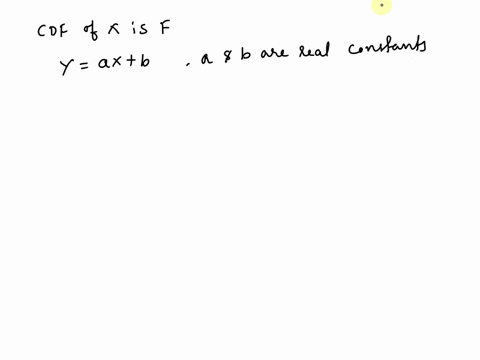 CDF of X is F
Y = ax + b , a & b are real constants